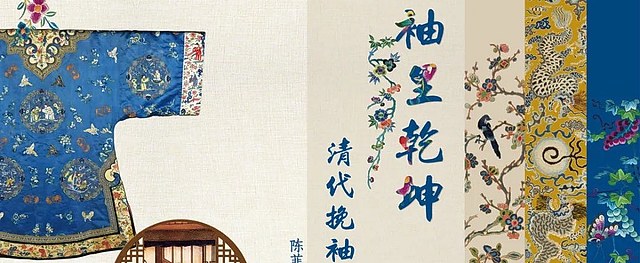 袖里乾坤
清代挽袖
陈菲